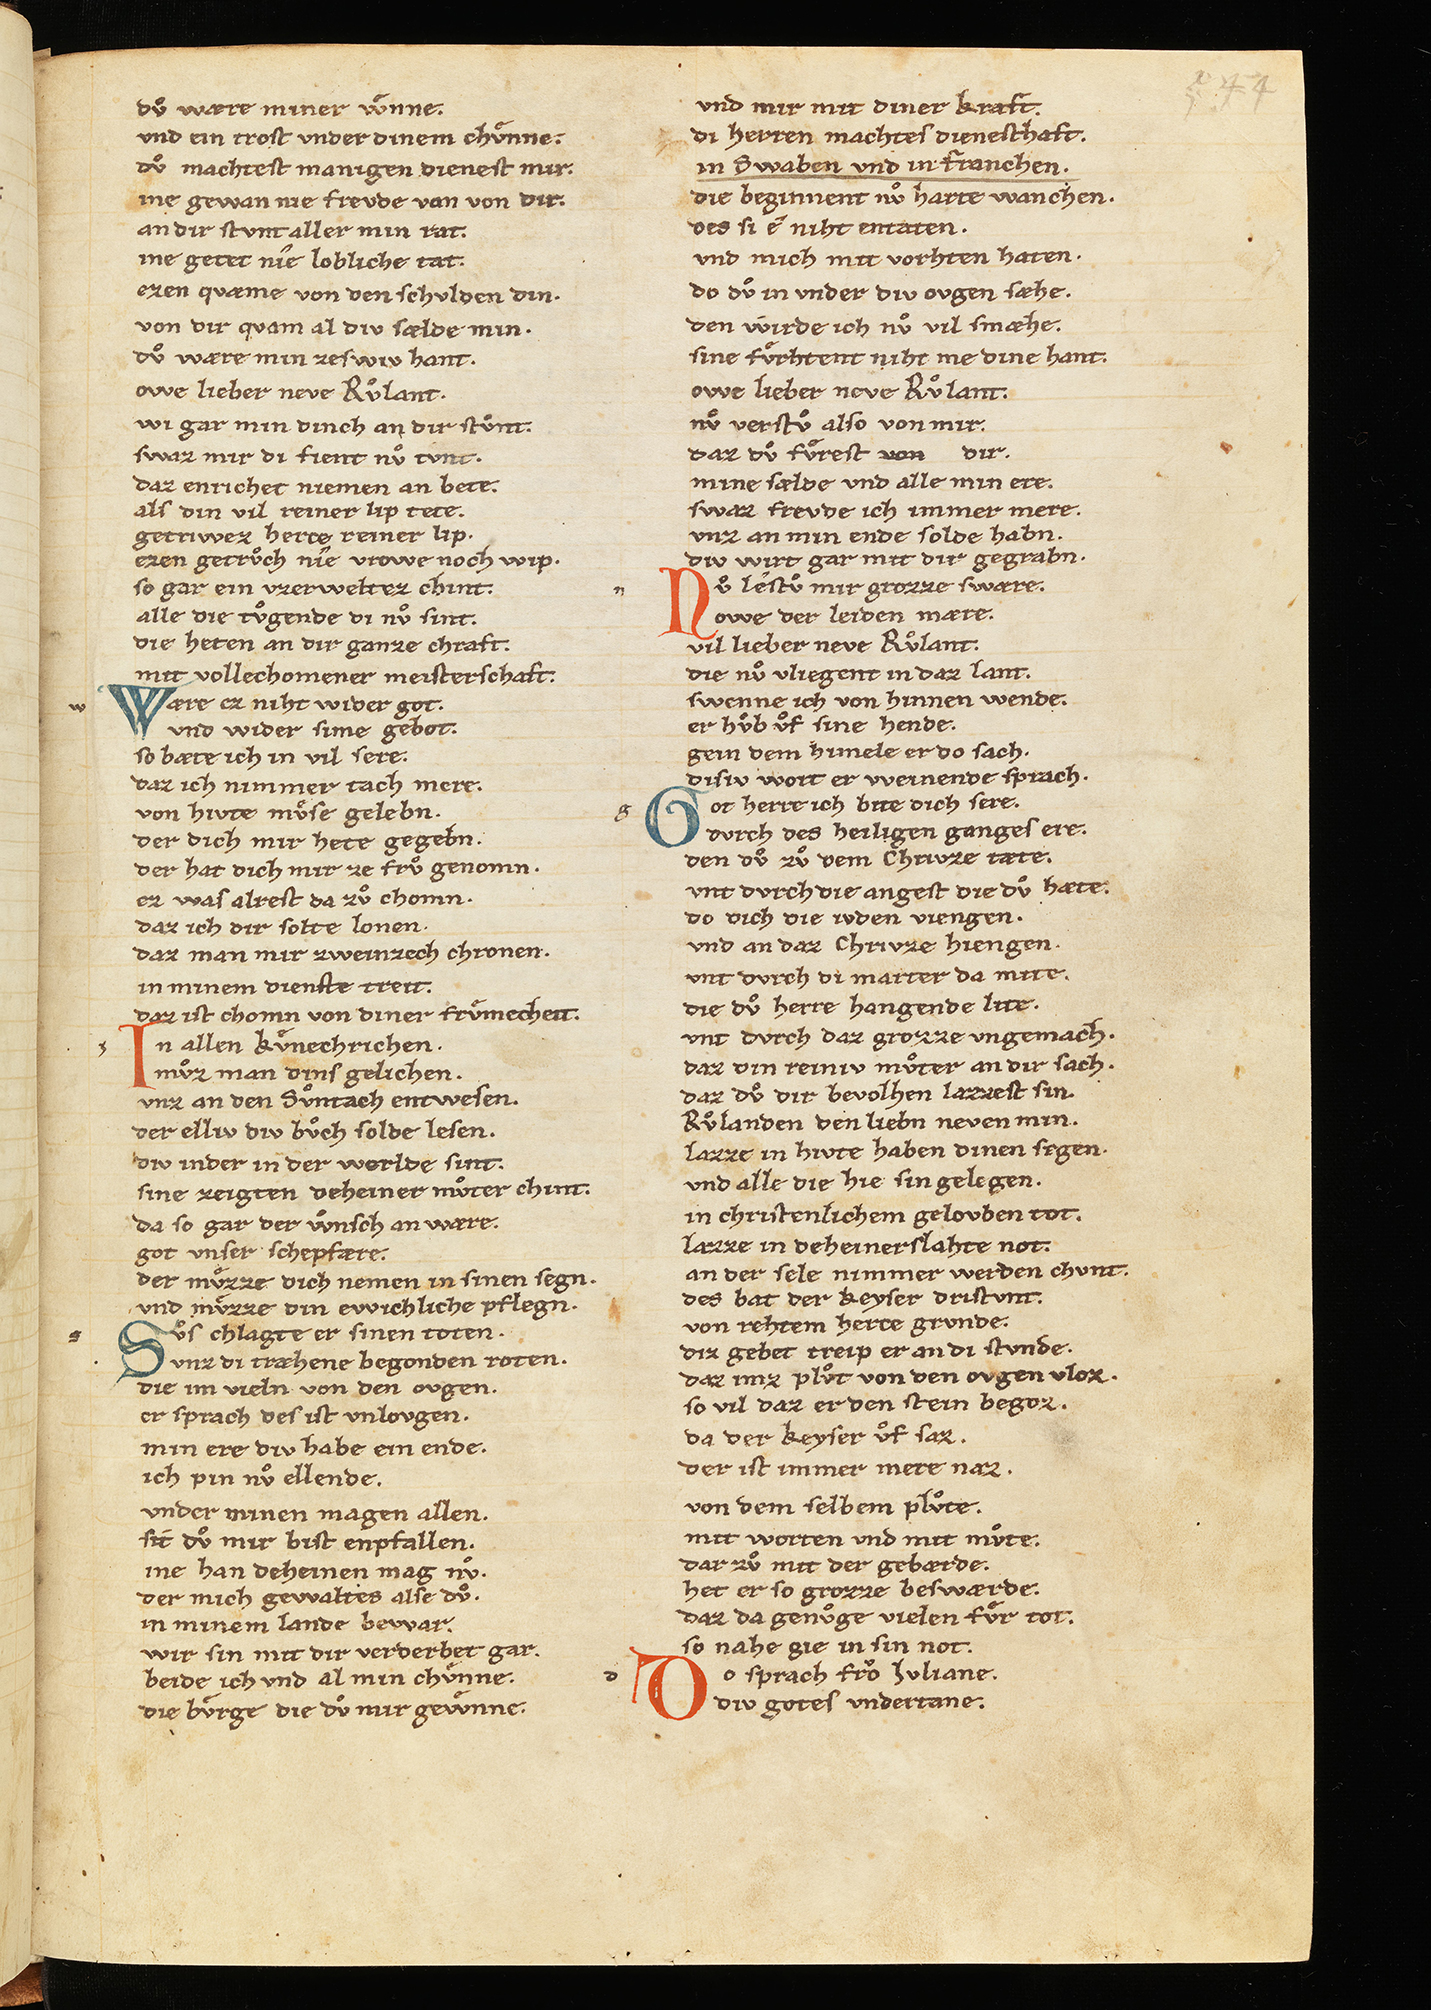 dvͦ wære miner wͤnne.
vnd ein trost vnder dinem chvͤnne.
dvͦ machtest manigen dienest mir.
ine gewan nie frevde van von dir.
an dir stvnt aller min rat.
ine getet nîe lobliche tat.
ezen quæme von den schvlden din.
von dir quam al div sælde min.
dvͦ wære min zeswiv hant.
owe lieber neve Rvͦlant.
wi gar min dinch an dir stvͦnt.
swaz mir di fient nvͦ tvnt.
daz enrichet niemen an bete.
als din vil reiner lip tete.
getriwez herce reiner lip.
ezen getrvͦch nîe vrowe noch wip.
so gar ein vzerweltez chint.
alle die tvͦgende di nvͦ sint.
die heten an dir ganze chraft.
mit vollechomener meisterschaft.
w Wære ez niht wider got.
vnd wider sime gebot.
so bæte ich in vil sere.
daz ich nimmer tach mere.
von hivte mvͦse gelebn.
der dich mir hete gegebn.
der hat dich mir ze frvͦ genomn.
ez was alrest da zvͦ chomn.
daz ich dir solte lonen.
daz man mir zweinzech chronen.
in minem dienste treit.
daz ist chomn von diner frvͤmecheit.
i In allen kvͤnechrichen.
mvͦz man dins gelichen.
vnz an den Svͦntach entwesen.
der elliv div bvͦch solde lesen.
div inder in der werlde sint.
sine zeigten deheiner mvͦter chint.
da so gar der wͦnsch an wære.
got vnser schepfære.
der mvͤzze dich nemen in sinen segn.
vnd mvͤzze din ewichliche pflegn.
s Svͦs chlagte er sinen toten.
vnz di træhene begonden roten.
die im vieln von den ovgen.
er sprach des ist vnlovgen.
min ere div habe ein ende.
ich pin nvͦ ellende.
vnder minen magen allen.
sit dvͦ mir bist enpfallen.
ine han deheinen mag nvͦ.
der mich gewaltes alse dvͦ.
in minem lande bewar.
wir sin mit dir verderbet gar.
beide ich vnd al min chvͤnne.
die bvͤrge die dvͦ mir gewͤnne.
vnd mir mit diner kraft.
di herren machtes dienesthaft.
in Swaben vnd in franchen.
die beginnent nvͦ harte wanchen.
des si ê niht entaten.
vnd mich mit vorhten haten.
do dvͦ in vnder div ovgen sæhe.
den wirde ich nvͦ vil smæhe.
sine fvͤrhtent niht me dine hant.
owe lieber neve Rvͦlant.
nvͦ verstvͦ also von mir.
daz dvͦ fvͤrest von dir.
mine sælde vnd alle min ere.
swaz frevde ich immer mere.
vnz an min ende solde habn.
div wirt gar mit dir gegrabn.
n Nvͦ lestvͦ mir grozze swære.
owe der leiden mære.
vil lieber neve Rvͦlant.
die nvͦ vliegent in daz lant.
swenne ich von hinnen wende.
er hvͦb vͦf sine hende.
gein dem himele er do sach.
disiv wort er weinende sprach.
g Got herre ich bite dich sere.
dvrch des heiligen ganges ere.
den dvͦ zvͦ dem Chrivze tæte.
vnt dvrch die angest die dvͦ hæte.
do dich die ivden viengen.
vnd an daz Chrivze hiengen.
vnt dvrch di marter da mite.
die dvͦ herre hangende lite.
vnt dvrch daz grozze vngemach.
daz din reiniv mvͦter an dir sach.
daz dvͦ dir bevolhen lazzest sin.
Rvͦlanden den liebn neven min.
lazze in hivte haben dinen segen.
vnd alle die hie sin gelegen.
in christenlichem gelovben tot.
lazze in deheinerslahte not.
an der sele nimmer werden chvnt.
des bat der keyser dristvnt.
von rehtem herce grvnde.
diz gebet treip er an di stvnde.
daz imz plvͦt von den ovgen vloz.
so vil daz er den stein begoz.
da der keyser vͦf saz.
der ist immer mere naz.
von dem selbem plvͦte.
mit worten vnd mit mvͦte.
dar zvͦ mit der gebærde.
het er so grozze beswærde.
daz da genvͦge vielen fvͤr tot.
so nahe gie in sin not.
d Do sprach frͦo Ivliane.
div gotes vndertane.